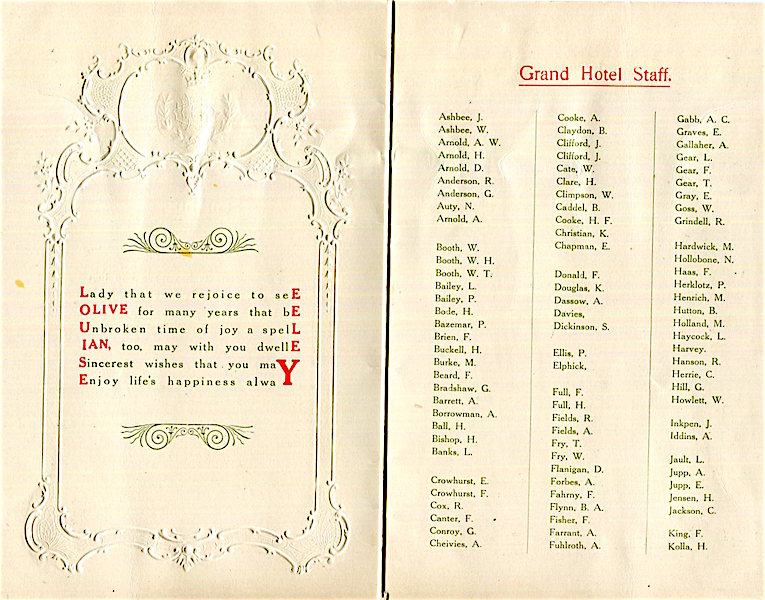 Lady that we rejoice to seE
OLIVE for many years that bE
Unbroken time of joy a spelL
IAN, too, may with you dwellE
Sincerest wishes that you maY
Enjoy life's happiness alwa
Grand Hotel Staff.
Ashbee, J.
Ashbee, W.
Arnold, A. W.
Arnold, H.
Arnold, D.
Anderson, R.
Anderson, G.
Auty, N.
Arnold, A.
Booth, W.
Booth, W. H.
Booth, W. T.
Bailey, L.
Bailey, P.
Bode, H.
Bazemar, P.
Brien, F.
Buckell, H.
Burke, M.
Beard, F.
Bradshaw, G.
Barrett, A.
Borrowman, A.
Ball, H.
Bishop, H.
Banks, L.
Crowhurst, E.
Crowhurst, F.
Cox, R.
Canter, F.
Conroy, G.
Cheivies, A.
Cooke, A.
Claydon, B.
Clifford, J.
Clifford, J.
Cate, W.
Clare, H.
Climpson, W.
Caddel, B.
Cooke, H. F.
Christian, K.
Chapman, E.
Donald, F.
Douglas, K.
Dassow, A.
Davies,
Dickinson, S.
Ellis, P.
Elphick,
Full, F.
Full, H.
Fields, R.
Fields, A.
Fry, T.
Fry, W.
Flanigan, D.
Forbes, A.
Fahrny, F.
Flynn, B. A.
Fisher, F.
Farrant, A.
Fuhlroth, A.
Gabb, A. C.
Graves, E.
Gallaher, A.
Gear, L.
Gear, F.
Gear, T.
Gray, E.
Goss, W.
Grindell, R.
Hardwick, M.
Hollobone, N.
Haas, F.
Herklotz, P.
Henrich, M.
Hutton, B.
Holland, M.
Haycock, L.
Harvey.
Hanson, R.
Herrie, C.
Hill, G.
Howlett, W.
Inkpen, J.
Iddins, A.
Jault, L.
Jupp, A.
Jupp, E.
Jensen, H.
Jackson, C.
King, F.
Kolla, H.